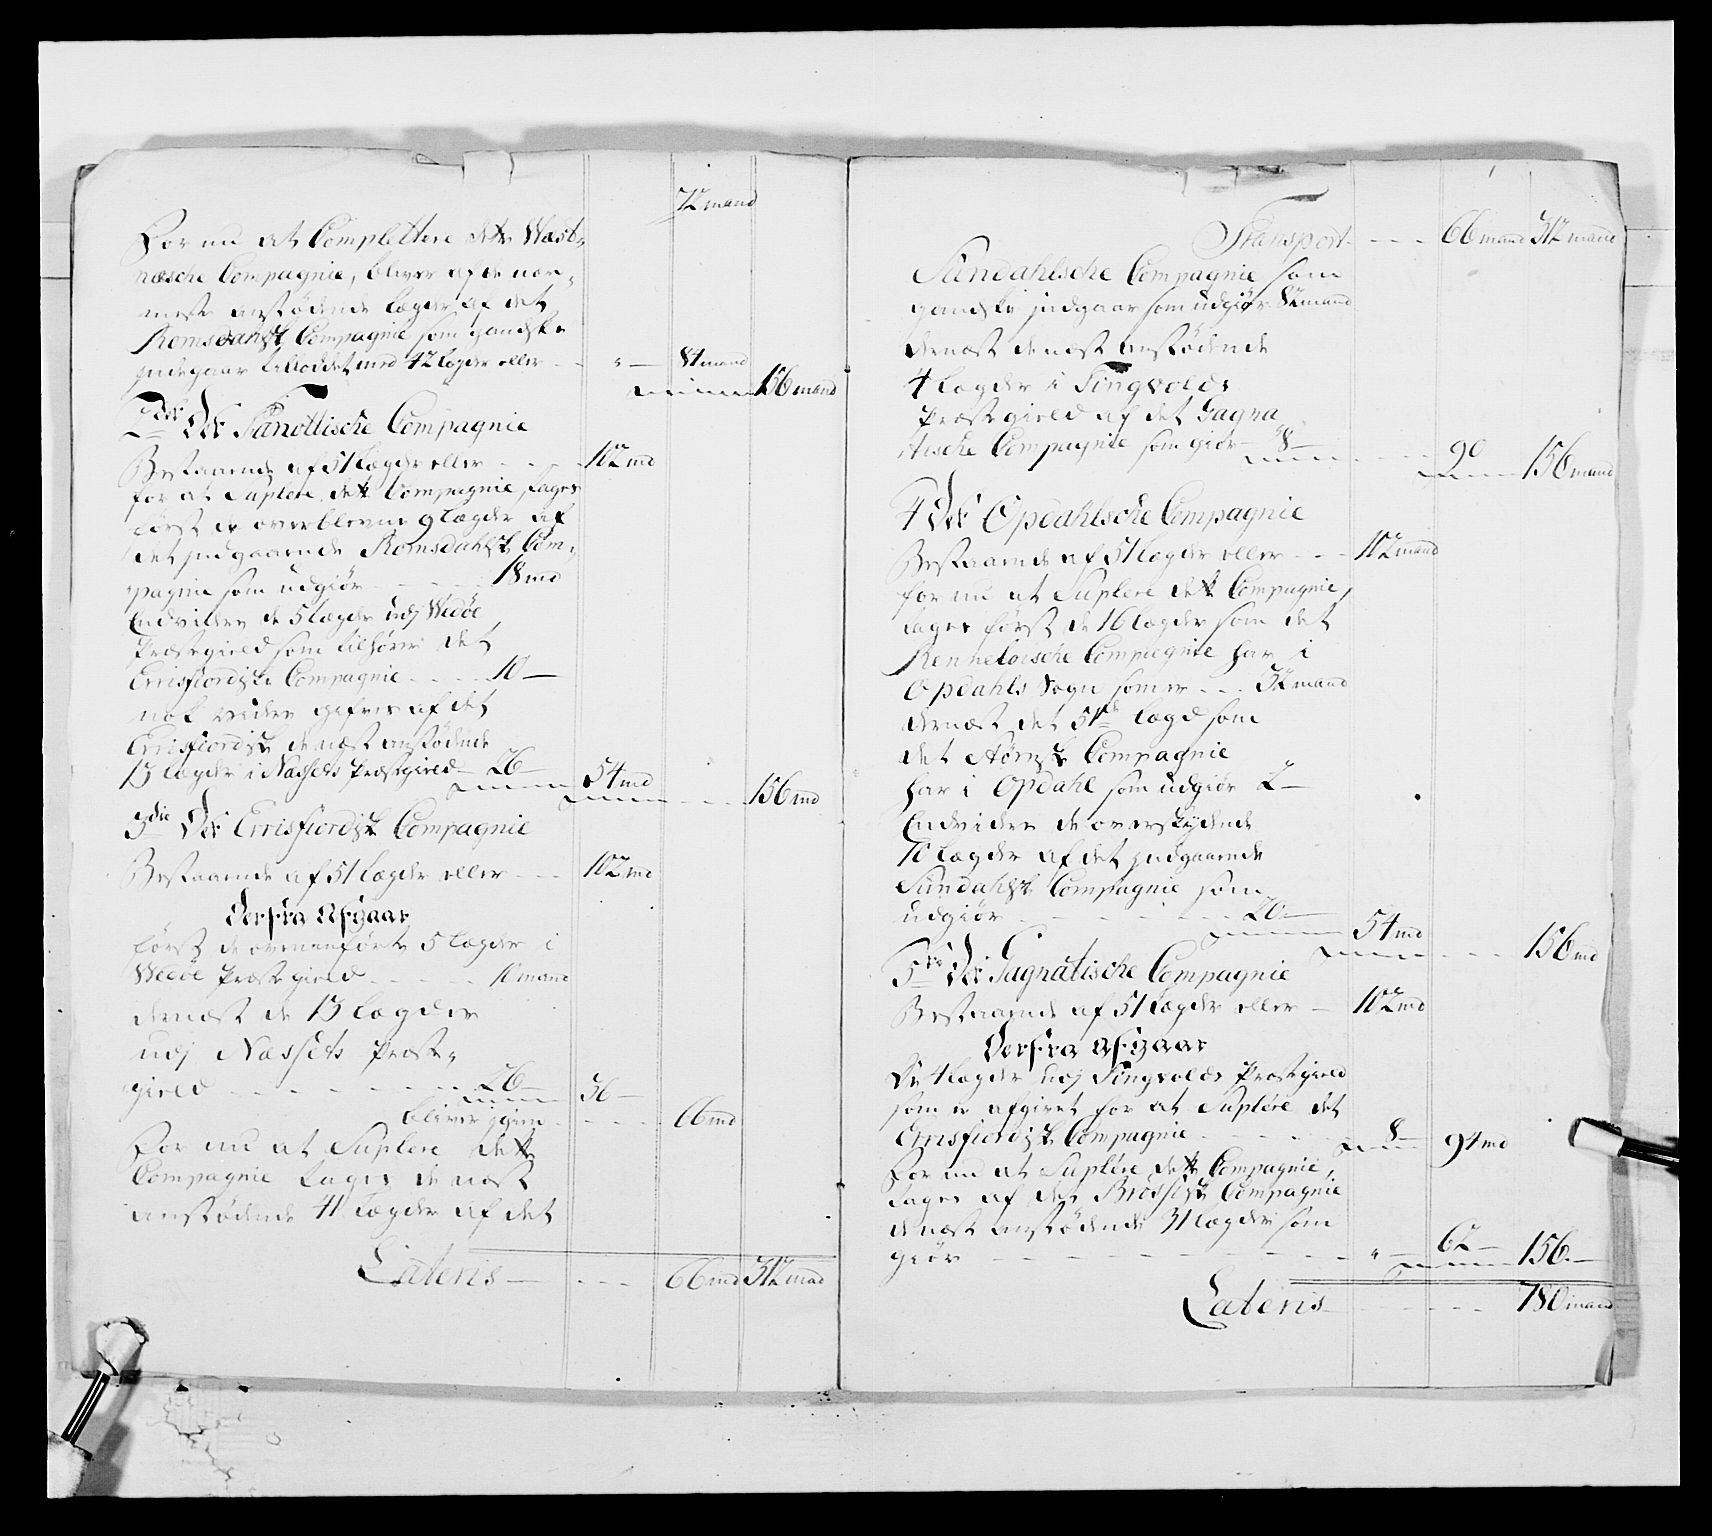 72 mand
For nu at Complettere dette Wæst-
næsche Compagnie, bliver af de nær-
meste anstødende lægder af det
Romsdahlske Compagnie som gandske
indgaar tilloddet med 42 lægder eller - - " — 84 mand
156 mand
2den Det Tanottische Compagnie
Bestaaende af 51 Lægder eller - - - 102 md
for at Suplere dette Compagnie, tages
først de overblevne 9 Lægder af
det indgaaende Romsdahlske Com-
pagnie som udgiør - - - 18 md
Endvidere de 5 Lægder udj Wedøe
Præstegield som tilhører det
Errisfiordske Compagnie - - - - 10 —
nok videre gifves af det
Errisfiordske de næst anstødende
13 lægder i Næssets Præstegield — 26 —
54 md - - - 156 md
3die Det Errisfiordske Compagnie
Bestaaende af 51 Lægder eller - - - 102 md
Derfra Afgaar
først de ovenanførte 5 lægder i
Wedøe Præstegield - - - - 10 mand
dernæst de 13 lægder
udj Næssets Præste-
gield - - - - - - - 26 — 36 —
bliver igien - - - - 66 md
For nu at Suplere dette
Compagnie tages de næst
anstødende 41 Lægder af det
Lateris — - - - 66 md 312 mand
Transport - - - - 66 mand 312 mand
Sundahlsche Compagnie som
gandske indgaar som udgiør 82 mand
dernæst de næst anstødende
4 Lægder i Tingvolds
Præstegield af det Gagna-
tische Compagnie som giør - 8 —
90 156 mand
4 Det Opdahlsche Compagnie
Bestaaende af 51 Lægder eller - - - 102 mand
for nu at Suplere dette Compagnie,
tages først de 16 lægder som det
Renneboische Compagnie har i
Opdahls Sogn som er - - - 32 mand
dernæst det 51de lægd som
det Størenske Compagnie
har i Opdahl som udgiør 2 —
Endvidere de overskydende
10 lægder af det indgaaende
Sundahlske Compagnie som
udgiør - - - - - - 20 —
54 md - - - 156 md
5te Det Gagnatische Compagnie
Bestaaende af 51 Lægder eller — 102 md
Derfra Afgaar
De 4 lægder udj Tingvolds Præstegield
som er afgivet for at Suplere det
Errisfiordske Compagnie - - - - 8 — 94 md
for nu at Suplere dette Compagnie,
tages af det Brøskiske Compagnie
de næst anstødende 31 lægder som
giør - - - - - - - - - " — 62 — 156 —
Lateris - - - - - - 780 mand